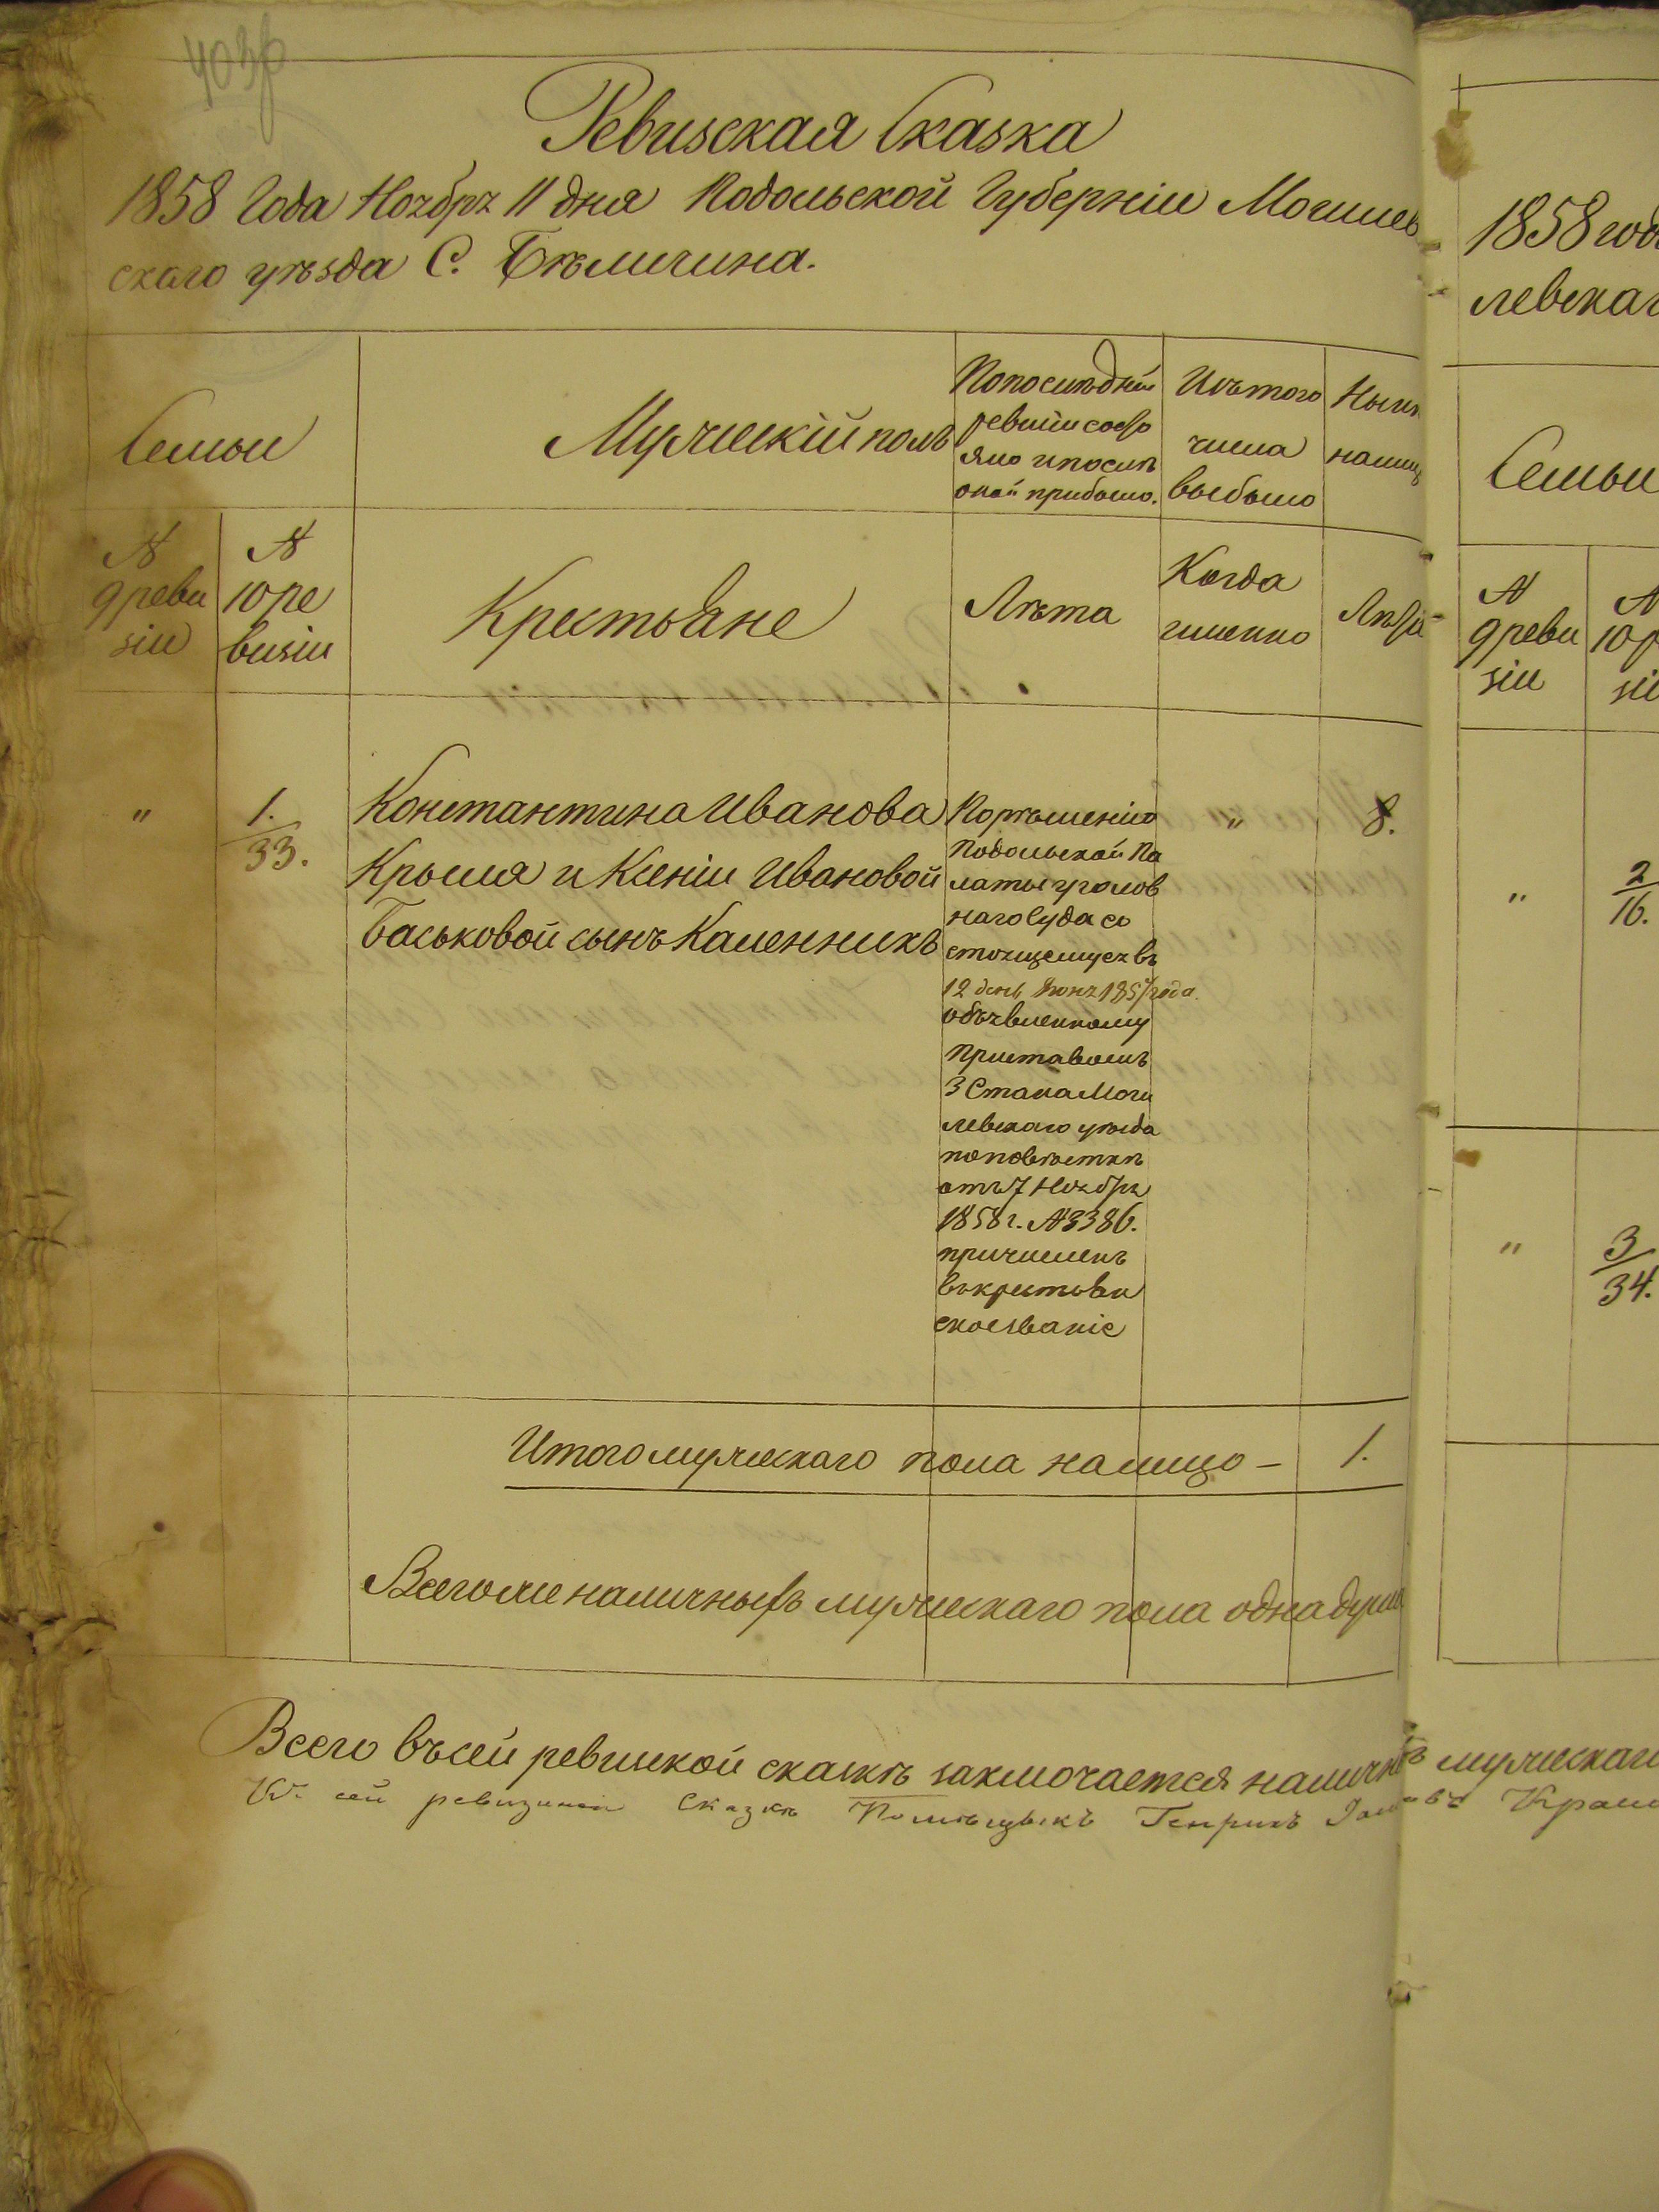 403об
Ревизская Сказка
1858 Года Ноября 11 дня Подольской Губерніи Могилев
скаго уѣзда С. Бѣличина.
Семьи
Мужескій полъ
По послѣдней
ревизіи состо
яло и послѣ
оной прибыло.
Изъ того
числа
выбыло
Нынѣ
налиц
№
9 реви
зіи
№
10 ре
визіи
Крестьяне
Лѣта
Когда
именно
Лѣта
"
1.
33.
Константина Иванова
Крыша и Ксеніи Ивановой
Баськовой сынъ Каленникъ
По рѣшенію
Подольской Па
латы уголов
наго Суда со
стоящемуся въ
12 день Іюня 1857 года
объявленному
Приставомъ
3 Стана Моги
левскаго уѣзда
по повѣсткѣ
отъ 7 Ноября
1858 г. № 3386.
причисленъ
въ крестьян
ское званіе
"
8.
Итого мужескаго пола налицо — 1.
Всего же наличныхъ мужескаго пола одна душа
Всего въ сей ревизской сказкѣ заключается наличныхъ мужескаго
Къ сей ревизской Сказкѣ Помѣщикъ Генрихъ
1858 год
левскаг
Семьи
№
9 реви
зіи
№
10 р
зіи
"
2
16.
"
3
34.